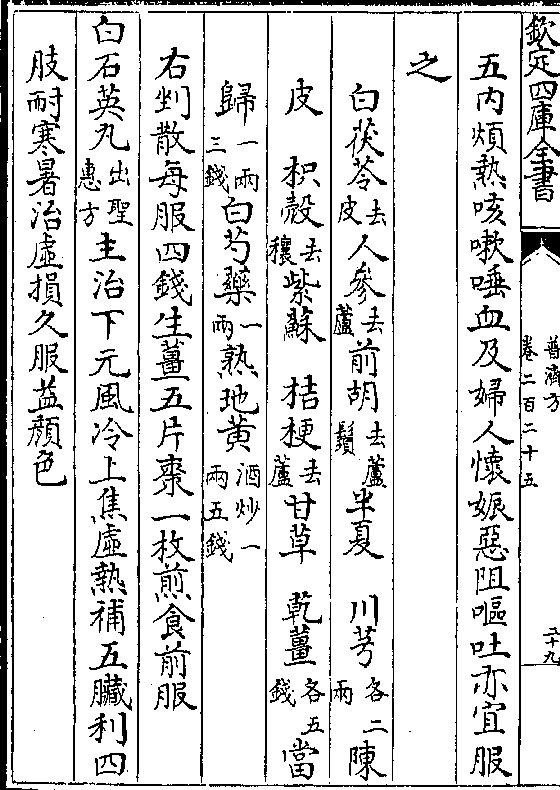 欽定四庫全書
普濟方
卷二百二十五
二十九
五内煩熱咳嗽唾血及婦人懷娠惡阻嘔吐亦宜服
之
白茯苓去皮人參去蘆前胡去蘆鬚半夏 川芎各二兩陳
皮 枳殼去穰紫蘇 桔梗去蘆甘草 乾薑各五錢當
歸一兩三錢白芍藥一兩熟地黄酒炒一兩五錢
右剉散每服四錢生薑五片棗一枚煎食前服
白石英丸出聖惠方主治下元風冷上焦虛熱補五臟利四
肢耐寒暑治虛損久服益顔色